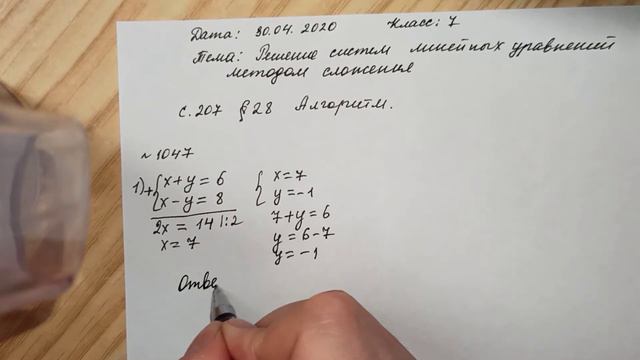 Дата: 30.04.2020 Класс: 7
Тема: Решение систем линейных уравнений
методом сложения
с. 207 §28 Алгоритм.
~ 1047
1) + { x + y = 6
x - y = 8
2x = 14 |:2
x = 7
{ x = 7
y = -1
7 + y = 6
y = 6 - 7
y = -1
Отве